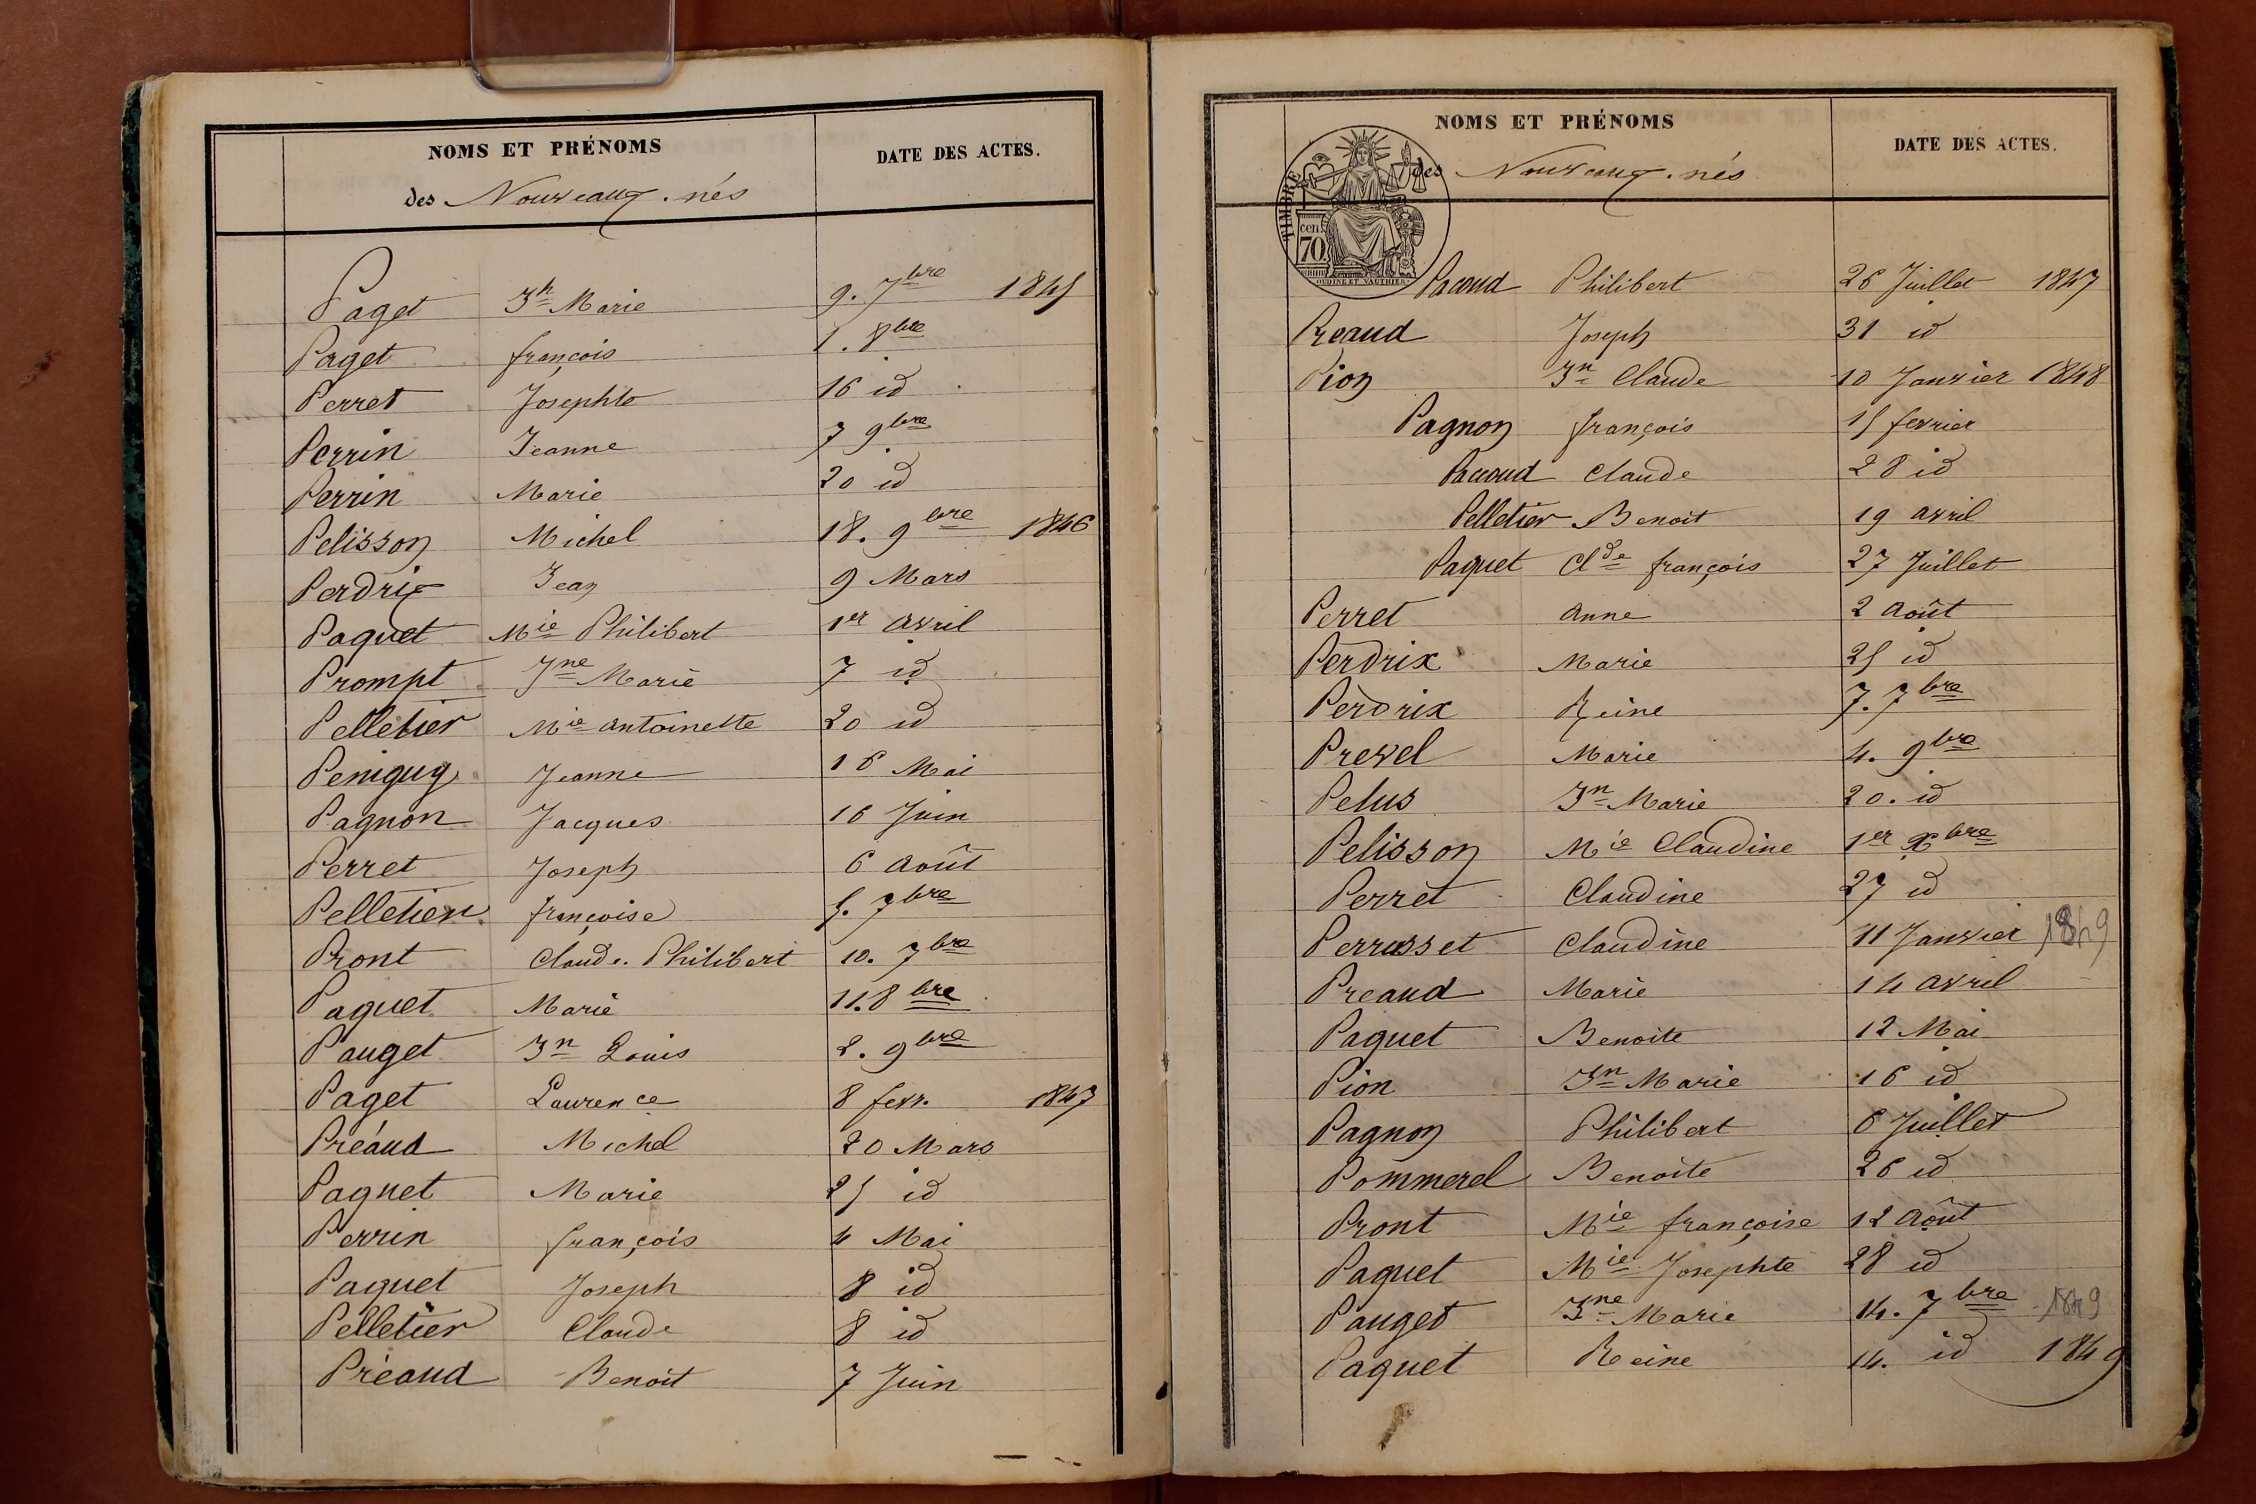 NOMS ET PRÉNOMS
DATE DES ACTES.
des Nouveaux-nés
Paget Jh Marie 9. 7bre 1845
Paget françois 1. 8bre
Perret Josephte 16 id
Perrin Jeanne 7 9bre
Perrin Marie 20 id
Pelisson Michel 18. 9bre 1846
Perdrix Jean 9 Mars
Paquet Mie Philibert 1er avril
Prompt Jne Marie 7 id
Pelletier Mie antoinette 20 id
Peniguy Jeanne 16 Mai
Pagnon Jacques 16 Juin
Perret Joseph 6 août
Pelletier françoise 5. 7bre
Pront Claude. Philibert 10. 7bre
Paquet Marie 11. 8bre
Pauget Jn Louis 2. 9bre
Paget Laurence 8 fevr. 1847
Préaud Michel 20 Mars
Paquet Marie 25 id
Perrin françois 4 Mai
Paquet Joseph 8 id
Pelletier Claude 8 id
Préaud Benoit 7 Juin
NOMS ET PRÉNOMS
DATE DES ACTES.
des Nouveaux-nés
TIMBRE
70 cen.
OUDINE ET VAUTHIER
Pacoud Philibert 26 Juillet 1847
Preaud Joseph 31 id
Pion Jn Claude 10 Janvier 1848
Pagnon françois 15 fevrier
Pacoud Claude 28 id
Pelletier Benoit 19 avril
Paquet Clde françois 27 Juillet
Perret anne 2 août
Perdrix Marie 25 id
Perdrix Reine 7. 7bre
Prevel Marie 4. 9bre
Pelus Jn Marie 20. id
Pelisson Mie Claudine 1er Xbre
Perret Claudine 27 id
Perrusset Claudine 11 Janvier 1849
Preaud Marie 14 avril
Paquet Benoite 12 Mai
Pion Jn Marie 16 id
Pagnon Philibert 6 Juillet
Pommerel Benoite 26 id
Pront Mie françoise 12 Août
Paquet Mie Josephte 28 id
Pauget Jne Marie 14. 7bre 1849
Paquet Reine 14. id 1849